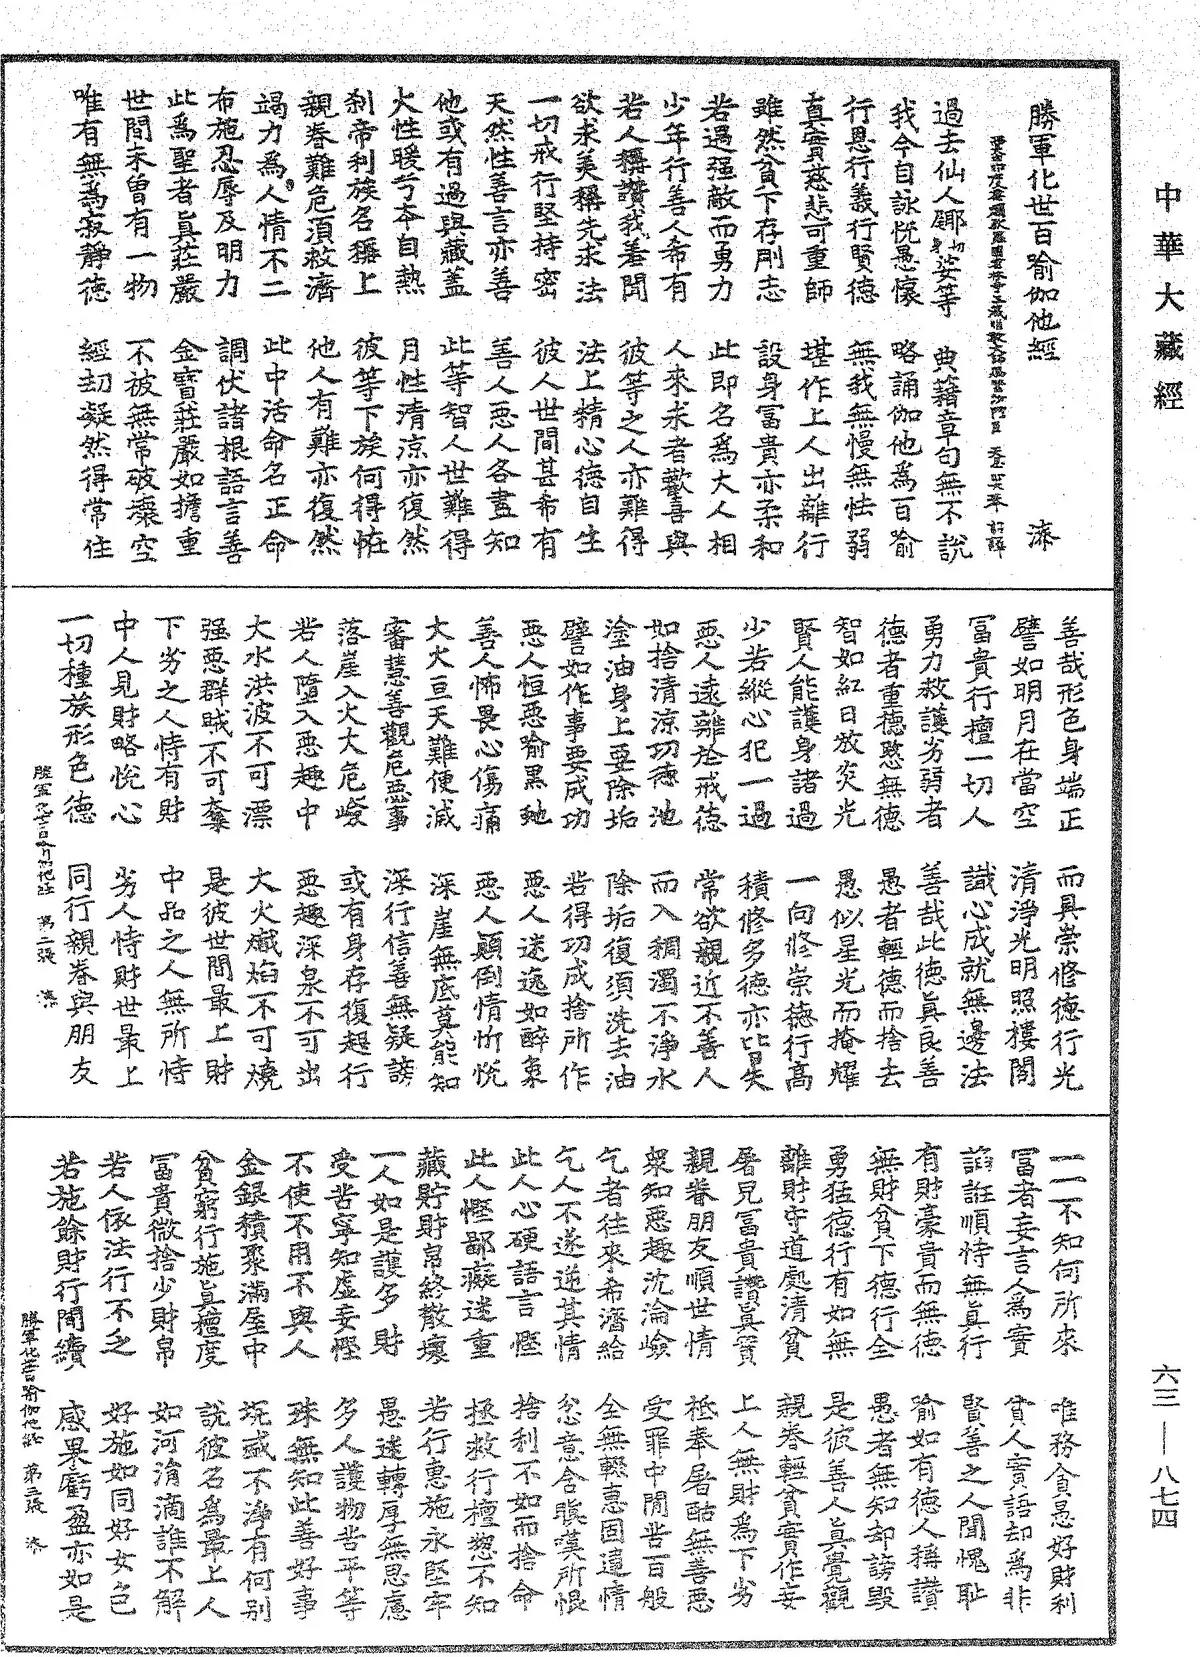 中華大藏經
勝軍化世百喻伽他經　漆
過去仙人㖿切身娑等　典籍章句無不說
我今自詠悅愚懷　略誦伽他為百喻
行恩行義行賢德　無我無慢無怯弱
真實慈悲可重師　堪作上人出離行
雖然貧下存剛志　設身冨貴亦柔和
若遇强敵而勇力　此即名為大人相
少年行善人希有　人來求者歡喜與
若人稱讚我羞聞　彼等之人亦難得
欲求美稱先求法　法上精心德自生
一切戒行堅持密　彼人世間甚希有
天然性善言亦善　善人惡人各盡知
他或有過與藏蓋　此等智人世難得
火性暖兮本自熱　月性清涼亦復然
剎帝利族名稱上　彼等下族何得恠
親眷難危須救濟　他人有難亦復然
竭力為人情不二　此中活命名正命
布施忍辱及明力　調伏諸根語言善
此為聖者真莊嚴　金寶莊嚴如擔重
世間未曾有一物　不被無常破壞空
唯有無為寂靜德　經劫凝然得常住
善哉形色身端正　而具崇修德行光
譬如明月在當空　清淨光明照樓閣
冨貴行檀一切人　識心成就無邊法
勇力救護劣弱者　善哉此德真良善
德者重德愍無德　愚者輕德而捨去
智如紅日放炎光　愚似星光而掩耀
賢人能護身諸過　一向修崇德行高
少若縱心犯一過　積修多德亦皆失
惡人遠離於戒德　常欲親近不善人
如捨清涼功德池　而入稠濁不淨水
塗油身上要除垢　除垢復須洗去油
譬如作事要成功　若得功成捨所作
惡人恒惡喻黑虵　惡人迷逸如醉象
善人怖畏心傷痛　惡人顛倒情忻悅
大火亘天難便滅　深崖無底莫能知
審慧善觀危惡事　深行信善無疑謗
落崖入火大危嶮　或有身存復起行
若人墮入惡趣中　惡趣深泉不可出
大水洪波不可漂　大火熾焰不可燒
强惡群賊不可奪　是彼世間最上財
下劣之人恃有財　中品之人無所恃
中人見財略悅心　劣人恃財世最上
一切種族形色德　同行親眷與朋友
勝軍化世百喻伽他經　第二張　漆
一一不知何所來　唯務貪愚好財利
冨者妄言人為實　貧人實語却為非
諂誑順恃無真行　賢善之人聞愧耻
有財豪貴而無德　喻如有德人稱讚
無財貧下德行全　愚者無知却謗毀
勇猛德行有如無　是彼善人真覺觀
離財守道處清貧　親眷輕貧實作妄
屠兒冨貴讚真實　上人無財為下劣
親眷朋友順世情　祗奉屠酤無善惡
眾知惡趣沈淪嶮　受罪中間苦百般
乞者往來希濟給　全無輟惠固違情
乞人不遂逆其情　忿意含瞋嘆所恨
此人心硬語言慳　捨利不如而捨命
此人慳鄙癡迷重　拯救行檀惣不知
藏貯財帛終散壞　若行惠施永堅牢
一人如是護多財　愚迷轉厚無思慮
受苦寧知虛妄慳　多人護物苦平等
不使不用不與人　殊無知此善好事
金銀積聚滿屋中　坑盛不淨有何別
貧窮行施真檀度　說彼名為最上人
冨貴微捨少財帛　如河涓滴誰不解
若人依法行不乏　好施如同好女色
若施餘財行間續　感果虧盈亦如是
勝軍化世百喻伽他經　第三張　漆
六三—八七四